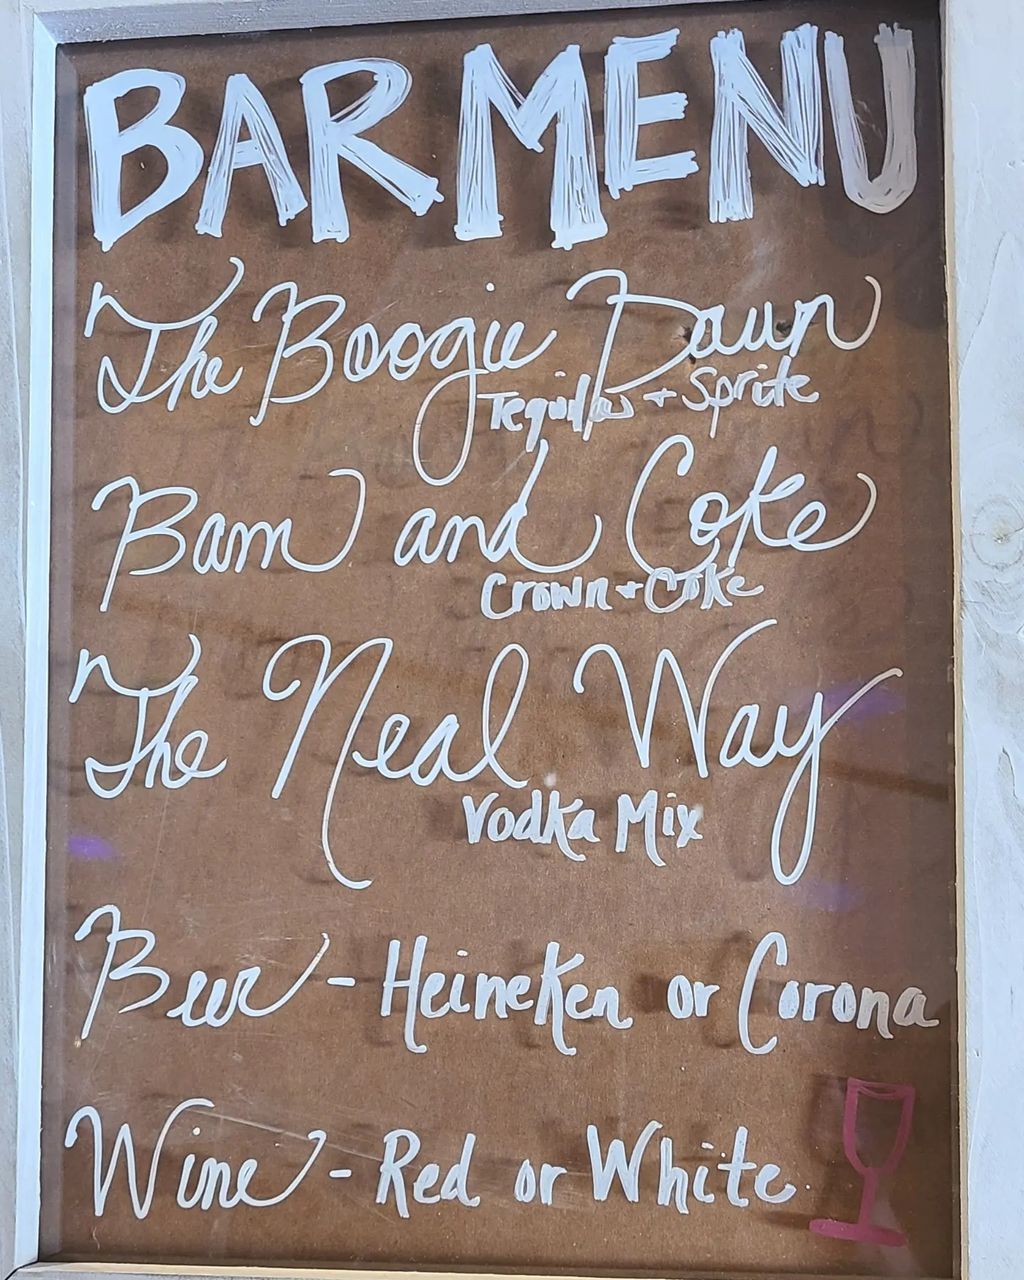 BAR MENU
The Boogie Daun
Tequila + Sprite
Bam and Coke
Crown + Coke
The Neal Way
Vodka Mix
Beer - Heineken or Corona
Wine - Red or White